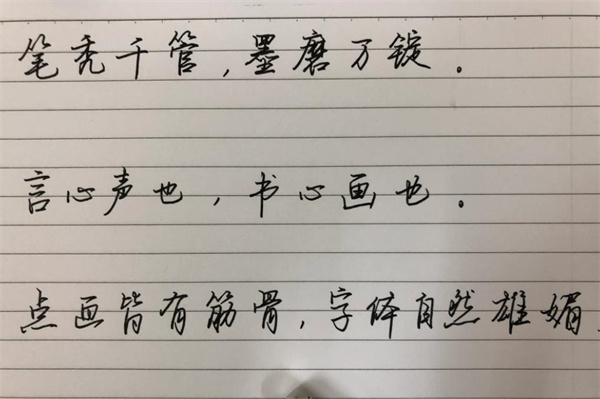 笔秃千管，墨磨万锭。
言心声也，书心画也。
点画皆有筋骨，字体自然雄媚